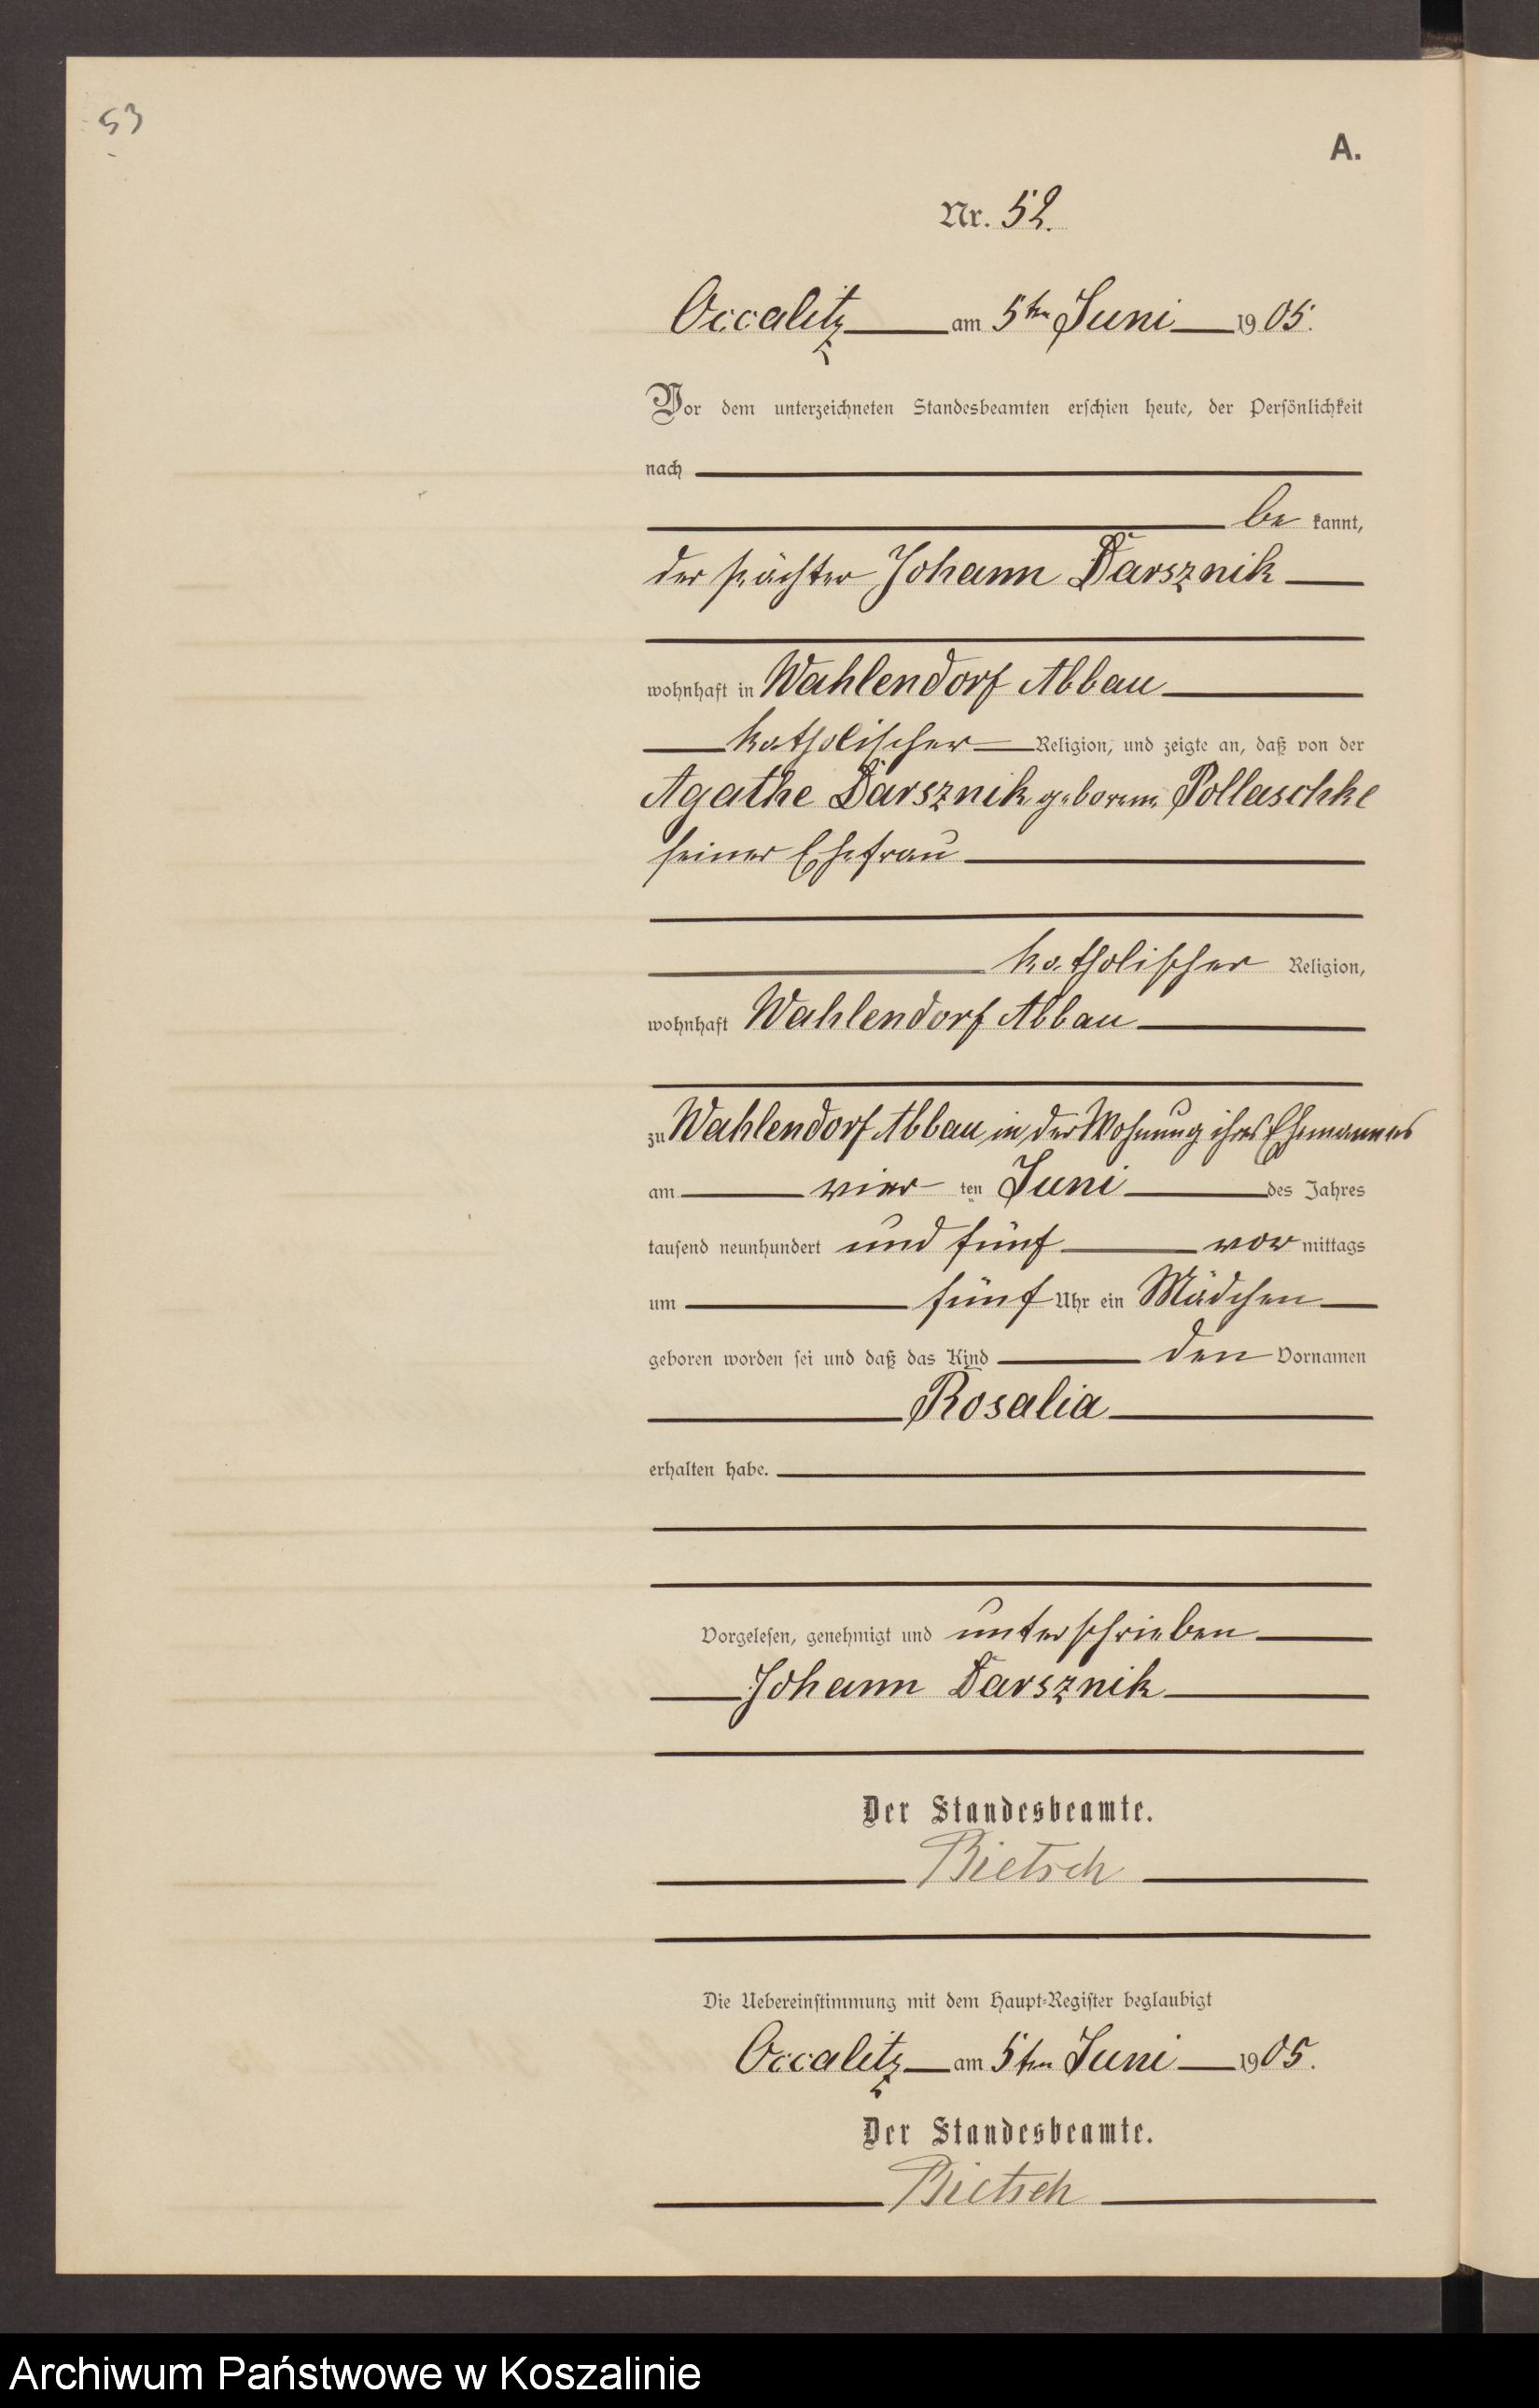 53
A.
Nr. 52.
Occalitz am 5ten Juni 1905.
Vor dem unterzeichneten Standesbeamten erschien heute, der Persönlichkeit
nach
be kannt,
der Pächter Johann Darsznik
wohnhaft in Wahlendorf Abbau
katholischer Religion, und zeigte an, daß von der
Agathe Darsznik geborene Pollaschke
seiner Ehefrau
katholischer Religion,
wohnhaft Wahlendorf Abbau
zu Wahlendorf Abbau in der Wohnung ihres Ehemannes
am vier ten Juni des Jahres
tausend neunhundert und fünf vor mittags
um fünf Uhr ein Mädchen
geboren worden sei und daß das Kind den Vornamen
Rosalia
erhalten habe.
Vorgelesen, genehmigt und unterschrieben
Johann Darsznik
Der Standesbeamte.
Bietsch
Die Uebereinstimmung mit dem Haupt-Register beglaubigt
Occalitz am 5ten Juni 1905.
Der Standesbeamte.
Bietsch
Archiwum Państwowe w Koszalinie